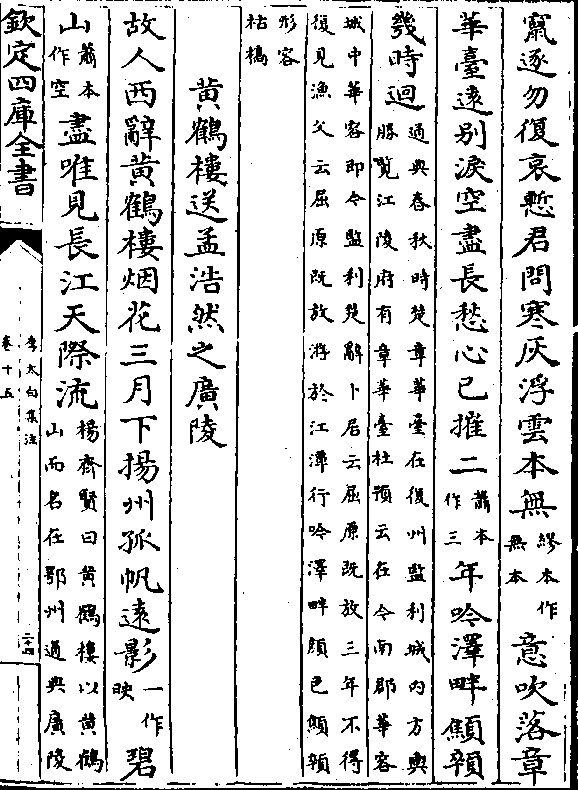 竄逐勿復哀慙君問寒灰浮雲本無繆本作無本意吹落章
華臺遠别淚空盡長愁心已摧二蕭本作三年吟澤畔顦顇
幾時迴通典春秋時楚章華臺在復州監利城内方輿
勝覽江陵府有章華臺杜預云在今南郡華容
城中華容即今監利楚辭卜居云屈原既放三年不得
復見漁父云屈原既放游於江潭行吟澤畔顔色顦顇
形容
枯槁
黄鶴樓送孟浩然之廣陵
故人西辭黄鶴樓烟花三月下揚州孤帆遠影一作映碧
山蕭本作空盡唯見長江天際流楊齊賢曰黄鶴樓以黄鶴
山而名在鄂州通典廣陵
欽定四庫全書
李太白集注
卷十五
二十四